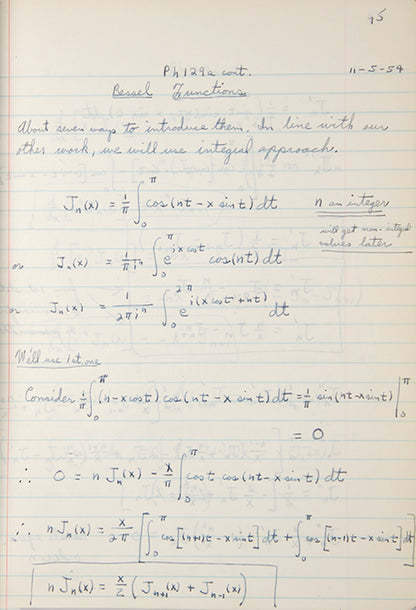 75
Ph 129a cont.
11-5-54
Bessel Functions
About seven ways to introduce them. In line with our
other work, we will use integral approach.
Jₙ(x) = 1/π ∫₀^π cos(nt - x sin t) dt
n an integer
will get non-integ
values later
or Jₙ(x) = 1/(π iⁿ) ∫₀^π e^(ix cos t) cos(nt) dt
or Jₙ(x) = 1/(2π iⁿ) ∫₀^2π e^(i(x cos t + nt)) dt
We'll use 1st. one
Consider 1/π ∫₀^π (n - x cos t) cos(nt - x sin t) dt = 1/π sin(nt - x sin t) |₀^π
= 0
∴ 0 = n Jₙ(x) - x/π ∫₀^π cos t cos(nt - x sin t) dt
∴ n Jₙ(x) = x/2π [∫₀^π cos[(n+1)t - x sin t] dt + ∫₀^π cos[(n-1)t - x sin t] dt]
n Jₙ(x) = x/2 (Jₙ₊₁(x) + Jₙ₋₁(x))